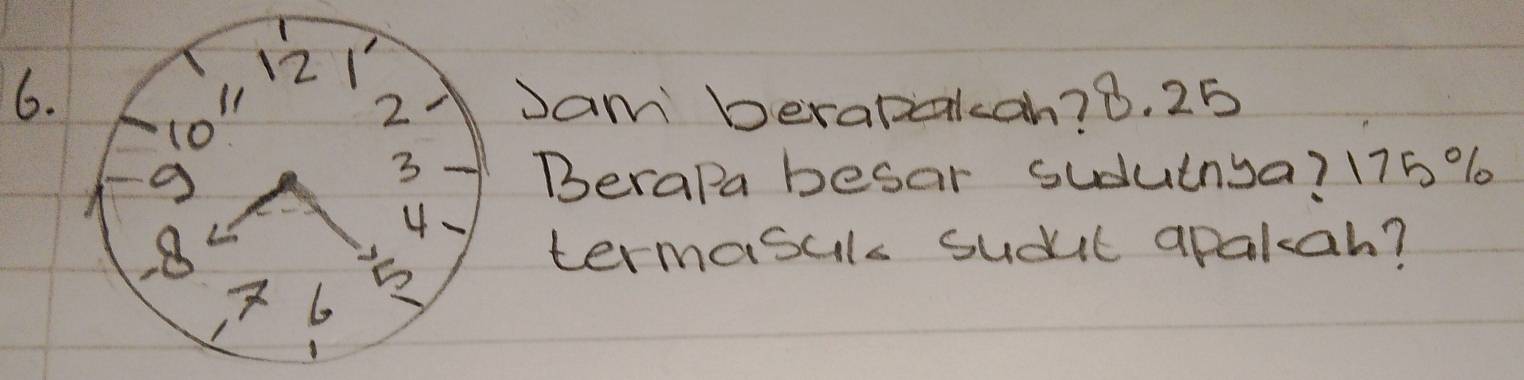 6.
12
1
2
3
4
5
6
7
8
9
10
11
Jam berapakah? 8.25
Berapa besar sudutnya? 175%
termasuk sudut apakah?